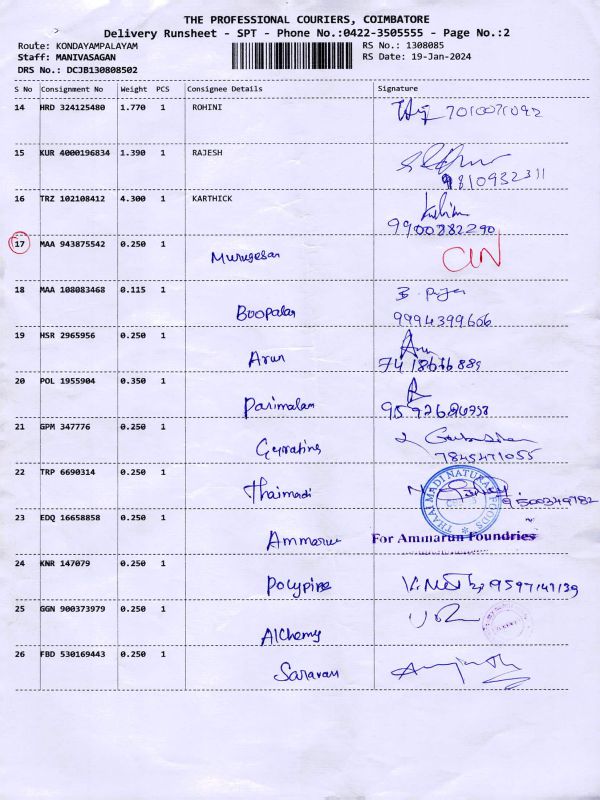 THE PROFESSIONAL COURIERS, COIMBATORE
Delivery Runsheet - SPT - Phone No.:0422-3505555 - Page No.:2
Route: KONDAYAMPALAYAM RS No.: 1308085
Staff: MANIVASAGAN RS Date: 19-Jan-2024
DRS No.: DCJB130808502
S No Consignment No Weight PCS Consignee Details Signature
14 HRD 324125480 1.770 1 ROHINI 7010071092
15 KUR 4000196834 1.390 1 RAJESH
9810932311
16 TRZ 102108412 4.300 1 KARTHICK
9900382290
17 MAA 943875542 0.250 1 Murugesan
18 MAA 108083468 0.115 1 Boopalan
9994399606
19 HSR 2965956 0.250 1 Arun Arun
20 POL 1955904 0.350 1 Parimalam
21 GPM 347776 0.250 1
7845471055
22 TRP 6690314 0.250 1 Thaimadi THAAI MADI NATURAL FOODS 9500349782
23 EDQ 16658858 0.250 1 Ammarun For Ammarun Foundries
24 KNR 147079 0.250 1 Polypipe 9597147139
25 GGN 900373979 0.250 1 Alchemy
26 FBD 530169443 0.250 1 Saravan